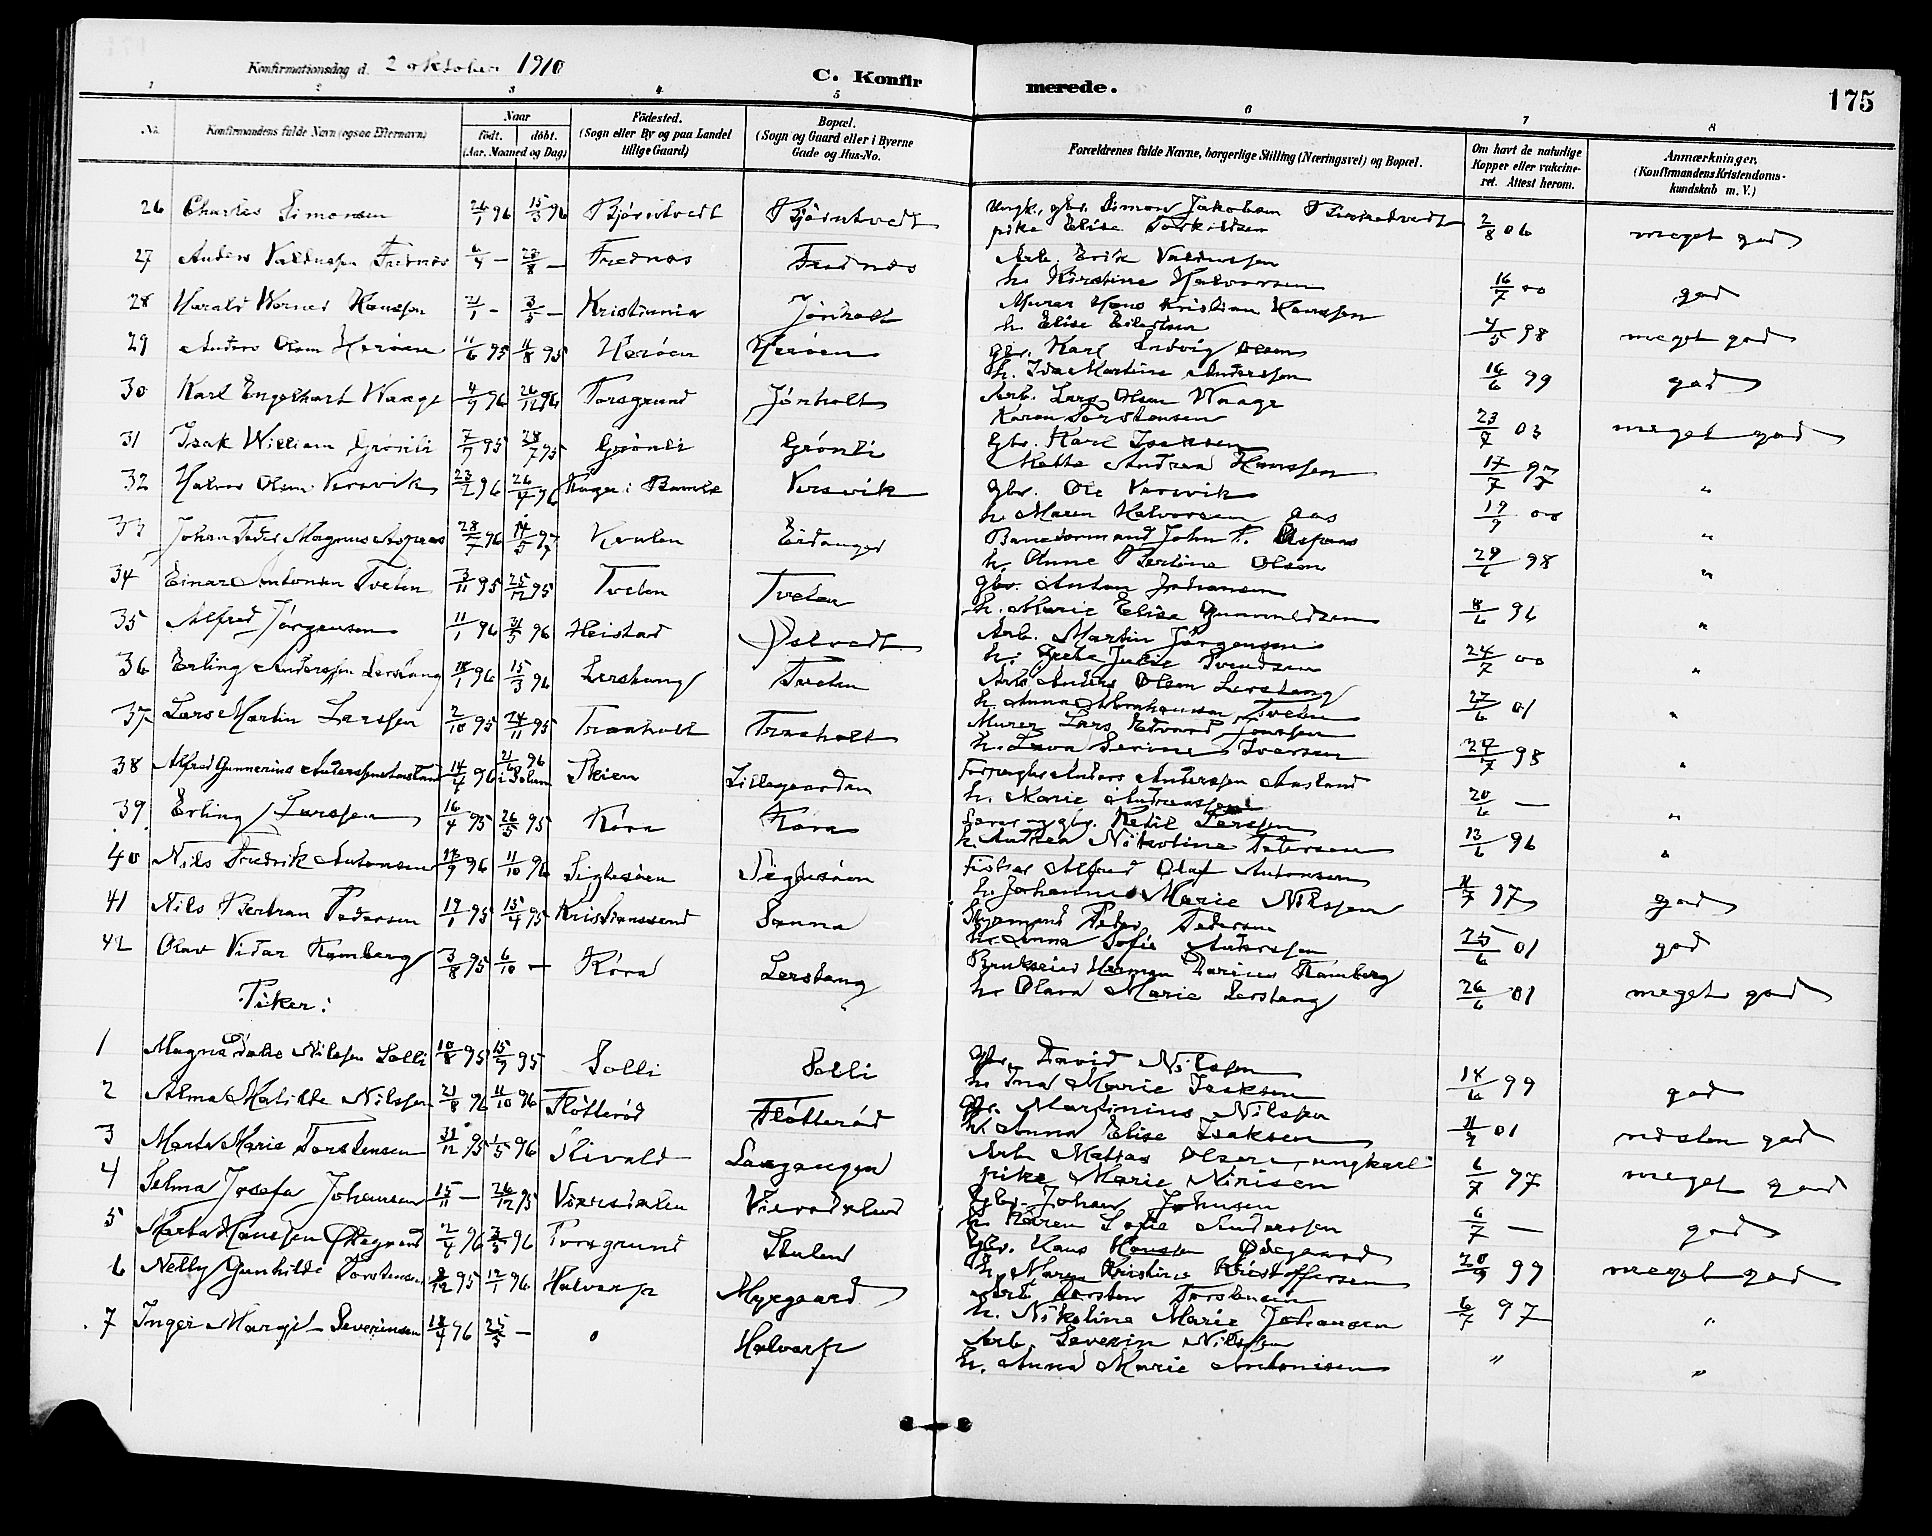 Konfirmationsdag d. 2 oktober 1910
C. Konfirmerede.
175
1 2 3 4 5 6 7 8
No. Konfirmandens fulde Navn (ogsaa Efternavn) Naar født. døbt. (Aar. Maaned og Dag) Fødested. (Sogn eller By og paa Landet tillige Gaard) Bopæl. (Sogn og Gaard eller i Byerne Gade og Hus-No. Forældrenes fulde Navne, borgerlige Stilling (Næringsvei) og Bopæl. Om havt de naturlige Kopper eller vakcineret. Attest herom. Anmærkninger. (Konfirmandens Kristendomskundskab m. V.)
26 Charles Simonsen 26/1 96 15/3 96 Bjørntvedt Bjørntvedt Ungk., gbr. Simon Jakobsen
pike Elise Torkildsen 2/8 06 meget god
27 Anders Frednes — — Frednes Frednes Arb. Erik
h. Kirstine Halvorsen 16/7 00 god
28 Harald Werner Hanssen 21/1 — 3/5 — Kristiania Jønholt Murer Hans Kristian Hanssen
h. Elise 4/5 98 meget god
29 Anders Olsen Herøen 11/6 95 11/8 95 Herøen Herøen gbr. Karl Ludvig Olsen
h. Ida Martine Anderssen 16/6 99 god
30 Karl Engelhart Waage 4/9 96 26/12 96 Porsgrund Jønholt Arb. Lars Olsen Waage
Karen Torstensen 23/9 03 meget god
31 Isak William Grønli 7/7 95 28/7 95 Grønli Grønli Gbr. Karl Isaksen
Mette Andrea Hanssen 17/7 97 "
32 Halvor Olsen Versvik 23/2 96 26/4 96 i Bamble Versvik Gbr. Ole Versvik
h. Maren Halvorsen Aas 19/9 00 "
33 Johan Peder Magnus Aspaas 28/7 96 14/5 97 Eidanger Baneformand John P. Aspaas
h. Anne Bertine Olsen 29/6 98 "
34 Einar Antonsen Tveten 3/11 95 25/12 95 Tveten Tveten Gbr. Anton Johansen
h. Marie Elise Gunnuldsen 8/6 96 "
35 Alfred Jørgensen 11/1 96 31/5 96 Heistad Østvedt Arb. Martin Jørgensen
h. Julie Svendsen 24/7 00 "
36 Erling Anderssen Lerstang 18/1 96 15/3 96 Lerstang Tveten Arb. Anders Olsen Lerstang
h. Anna Abrahamsen Tveten 27/6 01 "
37 Lars Martin Larssen 2/10 95 24/11 95 Traaholt Traaholt Murer Lars Edvard
h. Serine Iversen 27/7 98 "
38 Alfred Gunnerius Anderssen Aasland 14/4 96 21/6 96 i Solum Skien Lillegaarden Anders Anderssen Aasland
h. Marie Andreassen 20/6 — "
39 Erling Larssen 16/4 95 26/5 95 Kjøra Kjøra og gbr. Ketil Larssen
h. Anthea Nikoline Petersen 13/6 96 "
40 Nils Fredrik Antonsen 14/9 96 11/10 96 Siglesøen Siglesøen Fisker Alfred Olaf Antonsen
h. Johanne Marie Nilssen 11/7 97 god
41 Nils Bertran Pedersen 19/1 95 15/4 95 Kristianssund Sanna Styrmand Peder Pedersen
h. Anna Sofie Anderssen 25/6 01 god
42 Olav Vidar Ramberg 3/8 95 6/10 — Kjøra Lerstang Brukseier Herman Ramberg
h. Olava Marie Lerstang 26/6 01 meget god
Piker:
1 Magna Nilssen Solli 10/8 95 15/9 95 Solli Solli Gbr. David Nilssen
h. Ina Marie Isaksen 14/6 99 god
2 Alma Matilde Nilssen 21/8 96 11/10 96 Fløtterød Fløtterød gbr. Martinius Nilssen
h. Anna Elise Isaksen 11/9 01 næsten god
3 Marta Marie Torstensen 31/12 95 1/5 96 Langangen Arb. Mattas Olsen, ungkarl
pike Marie 6/7 97 meget god
4 Selma Josefa Johansen 15/11 — 26/12 95 Viersdalen Viersdalen Gbr. Johan Johnsen
h. Karen Sofie Anderssen 6/7 — god
5 Marta Hanssen Ødegaard 2/4 96 96 Porsgrund Stulen Gbr. Hans Hanssen Ødegaard
h. Maren Kristine Kristoffersen 20/9 99 meget god
6 Nelly Gunhilde Torstensen 9/12 95 19/1 96 Halvarp Myrgaard Arb. Torsten Torstensen
h. Nikoline Marie Johansen 6/7 97 "
7 Inger Margit Severinsen 18/4 96 25/5 — " Halvarp Arb. Severin Nilssen
h. Anna Marie Antonisen " "